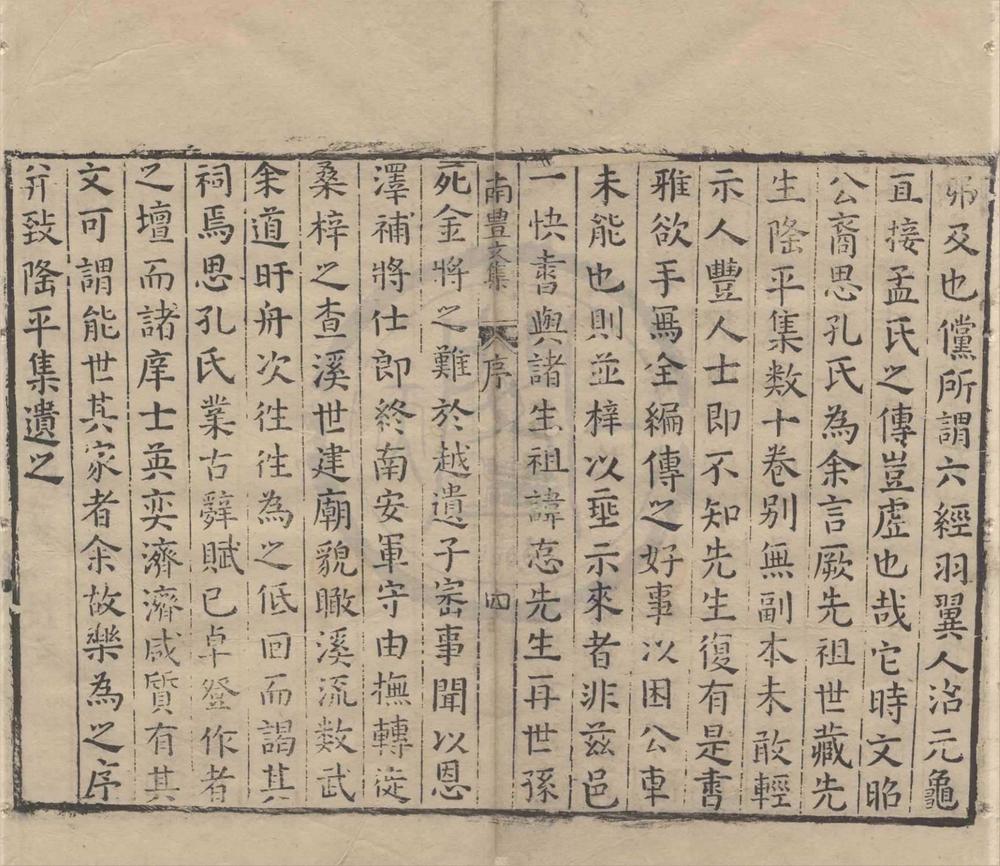 弗及也儻所謂六經羽翼人治元龜
直接孟氏之傳豈虛也哉它時文昭
公裔思孔氏為余言厥先祖世藏先
生隆平集数十卷别無副本未敢輕
示人豐人士即不知先生復有是書
雅欲手爲全編傳之好事以困公車
未能也則並梓以埀示來者非兹邑
一快書與諸生祖諱忞先生再世孫
南豊文集 序 四
死金將之難於越遺子崈事聞以恩
澤補將仕郎終南安軍守由撫轉徙
桑梓之查溪世建廟貌瞰溪流数武
余道盱舟次徃徃為之低回而謂其
祠焉思孔氏業古辭賦已卓登作者
之壇而諸庠士英奕濟濟咸質有其
文可謂能世其家者余故樂為之序
并致隆平集遺之